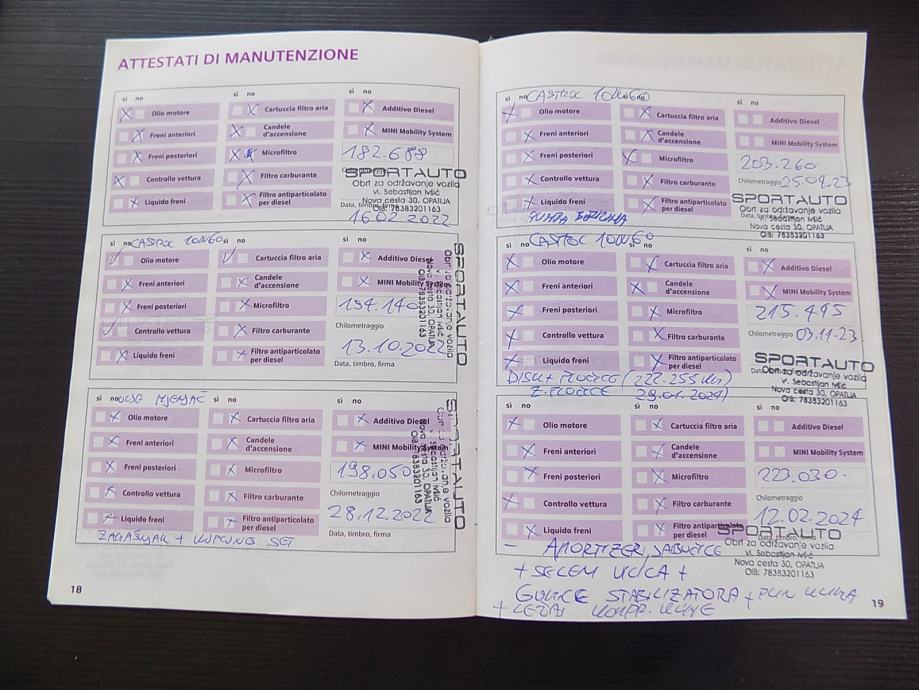 ATTESTATI DI MANUTENZIONE
sì no
Olio motore
Freni anteriori
Freni posteriori
Controllo vettura
Liquido freni
sì no
Cartuccia filtro aria
Candele
d'accensione
Microfiltro
Filtro carburante
Filtro antiparticolato
per diesel
sì no
Additivo Diesel
MINI Mobility System
182.688
SPORTAUTO
Obrt za održavanje vozila
vl. Sebastijan Ivšić
Nova cesta 30, OPATIJA
OIB: 78383201163
Data, timbro, firma
16.02.2022
sì no CASTROL 10W60 sì no
Olio motore
Freni anteriori
Freni posteriori
Controllo vettura
Liquido freni
Cartuccia filtro aria
Candele
d'accensione
Microfiltro
Filtro carburante
Filtro antiparticolato
per diesel
sì no
Additivo Diesel
MINI Mobility System
194.140
Chilometraggio
13.10.2022
Data, timbro, firma
SPORTAUTO
Obrt za održavanje vozila
vl. Sebastijan Ivšić
Nova cesta 30, OPATIJA
OIB: 78383201163
sì no
Olio motore
Freni anteriori
Freni posteriori
Controllo vettura
Liquido freni
sì no
Cartuccia filtro aria
Candele
d'accensione
Microfiltro
Filtro carburante
Filtro antiparticolato
per diesel
sì no
Additivo Diesel
MINI Mobility System
198.050
Chilometraggio
28.12.2022
Data, timbro, firma
SPORTAUTO
Obrt za održavanje vozila
vl. Sebastijan Ivšić
Nova cesta 30, OPATIJA
OIB: 78383201163
ZAMAŠNJAK + KUPLUNG SET
18
sì no CASTROL 10W60
Olio motore
Freni anteriori
Freni posteriori
Controllo vettura
Liquido freni
Cartuccia filtro aria
Candele
d'accensione
Microfiltro
Filtro carburante
Filtro antiparticolato
per diesel
sì no
Additivo Diesel
MINI Mobility System
203.260
Chilometraggio 25.09.23
SPORTAUTO
Obrt za održavanje vozila
vl. Sebastijan Ivšić
Nova cesta 30, OPATIJA
OIB: 78383201163
PUMPA
sì no CASTROL 10W60
Olio motore
Freni anteriori
Freni posteriori
Controllo vettura
Liquido freni
Cartuccia filtro aria
Candele
d'accensione
Microfiltro
Filtro carburante
Filtro antiparticolato
per diesel
sì no
Additivo Diesel
MINI Mobility System
215.495
Chilometraggio 03.11.23
SPORTAUTO
Obrt za održavanje vozila
vl. Sebastijan Ivšić
Nova cesta 30, OPATIJA
OIB: 78383201163
DISK + PLOČICE (222.255 km)
Z. PLOČICE 29.01.2024)
sì no
Olio motore
Freni anteriori
Freni posteriori
Controllo vettura
Liquido freni
sì no
Cartuccia filtro aria
Candele
d'accensione
Microfiltro
Filtro carburante
Filtro antiparticolato
per diesel
sì no
Additivo Diesel
MINI Mobility System
223.030
Chilometraggio
12.02.2024
SPORTAUTO
Obrt za održavanje vozila
vl. Sebastijan Ivšić
Nova cesta 30, OPATIJA
OIB: 78383201163
- AMORTIZER, JABUČICE
+ SELEM +
GUMICE STABILIZATORA +
+
19